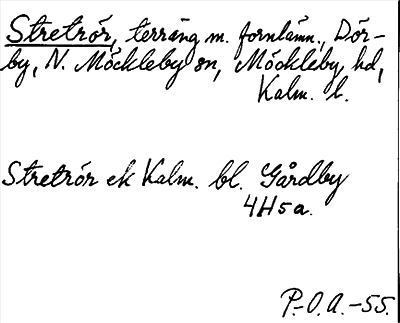 Stretrör, terräng m. fornlämn., Dör-
by, N. Möckleby sn, Möckleby hd,
Kalm. l.
Stretrör ek Kalm. bl. Gårdby
4H5a.
P.-O.A.-55.